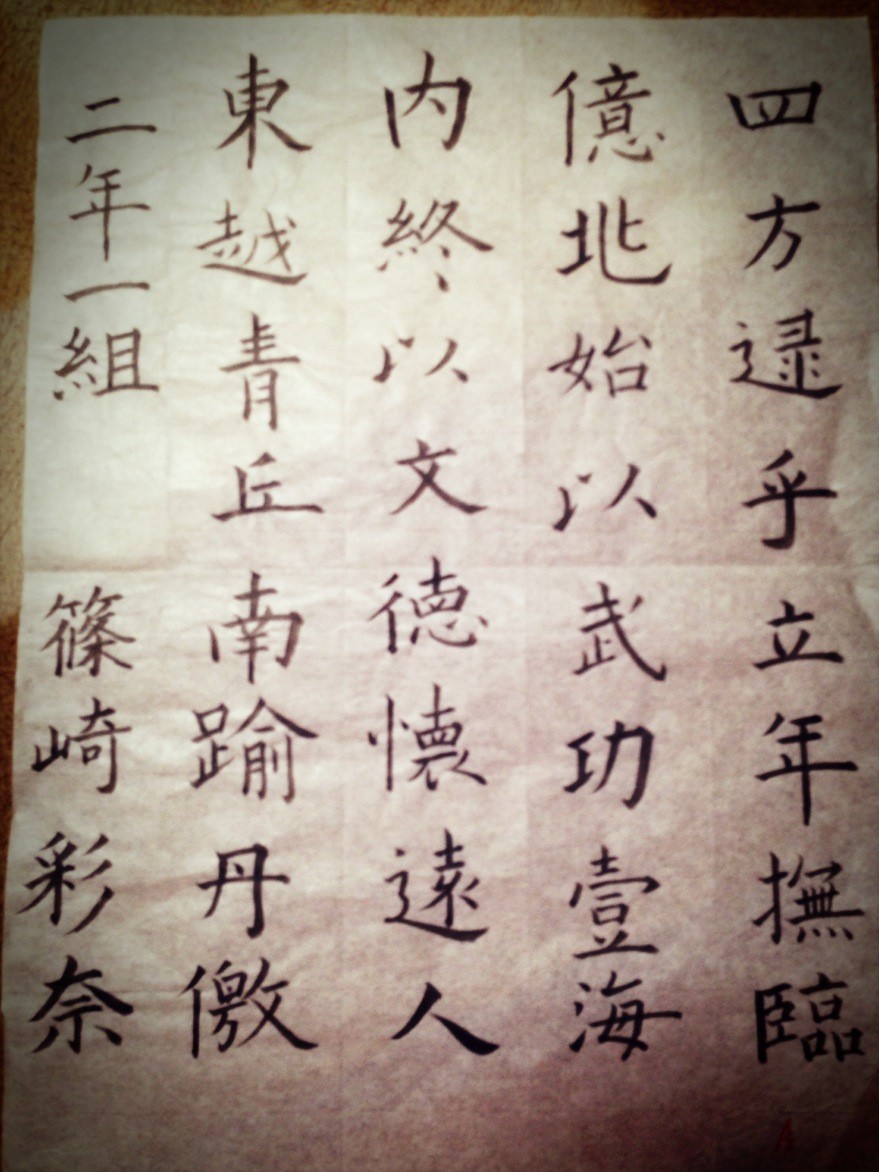 四方逮乎立年撫臨
億兆始以武功壹海
内終以文徳懐遠人
東越青丘南踰丹儌
二年一組 篠崎彩奈